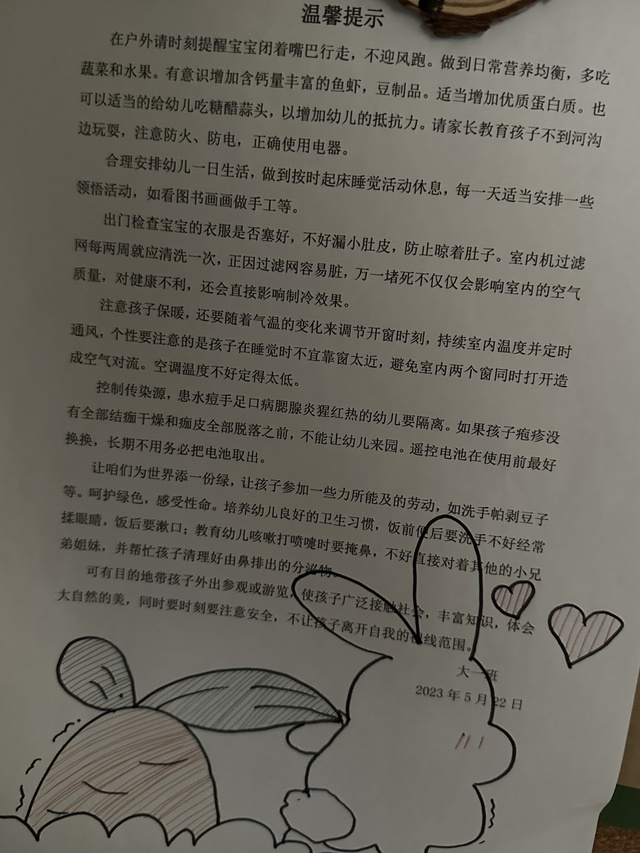 温馨提示
在户外请时刻提醒宝宝闭着嘴巴行走，不迎风跑。做到日常营养均衡，多吃
蔬菜和水果。有意识增加含钙量丰富的鱼虾，豆制品。适当增加优质蛋白质。也
可以适当的给幼儿吃糖醋蒜头，以增加幼儿的抵抗力。请家长教育孩子不到河沟
边玩耍，注意防火、防电，正确使用电器。
合理安排幼儿一日生活，做到按时起床睡觉活动休息，每一天适当安排一些
领悟活动，如看图书画画做手工等。
出门检查宝宝的衣服是否塞好，不好漏小肚皮，防止晾着肚子。室内机过滤
网每两周就应清洗一次，正因过滤网容易脏，万一堵死不仅仅会影响室内的空气
质量，对健康不利，还会直接影响制冷效果。
注意孩子保暖，还要随着气温的变化来调节开窗时刻，持续室内温度并定时
通风，个性要注意的是孩子在睡觉时不宜靠窗太近，避免室内两个窗同时打开造
成空气对流。空调温度不好定得太低。
控制传染源，患水痘手足口病腮腺炎猩红热的幼儿要隔离。如果孩子疱疹没
有全部结痂干燥和痂皮全部脱落之前，不能让幼儿来园。遥控电池在使用前最好
换换，长期不用务必把电池取出。
让咱们为世界添一份绿，让孩子参加一些力所能及的劳动，如洗手帕剥豆子
等。呵护绿色，感受性命。培养幼儿良好的卫生习惯，饭前便后要洗手不好经常
揉眼睛，饭后要漱口；教育幼儿咳嗽打喷嚏时要掩鼻，不好直接对着其他的小兄
弟姐妹，并帮忙孩子清理好由鼻排出的分泌物。
可有目的地带孩子外出参观或游览，使孩子广泛接触社会，丰富知识，体会
大自然的美，同时要时刻要注意安全，不让孩子离开自我的视线范围。
大一班
2023 年 5 月 22 日